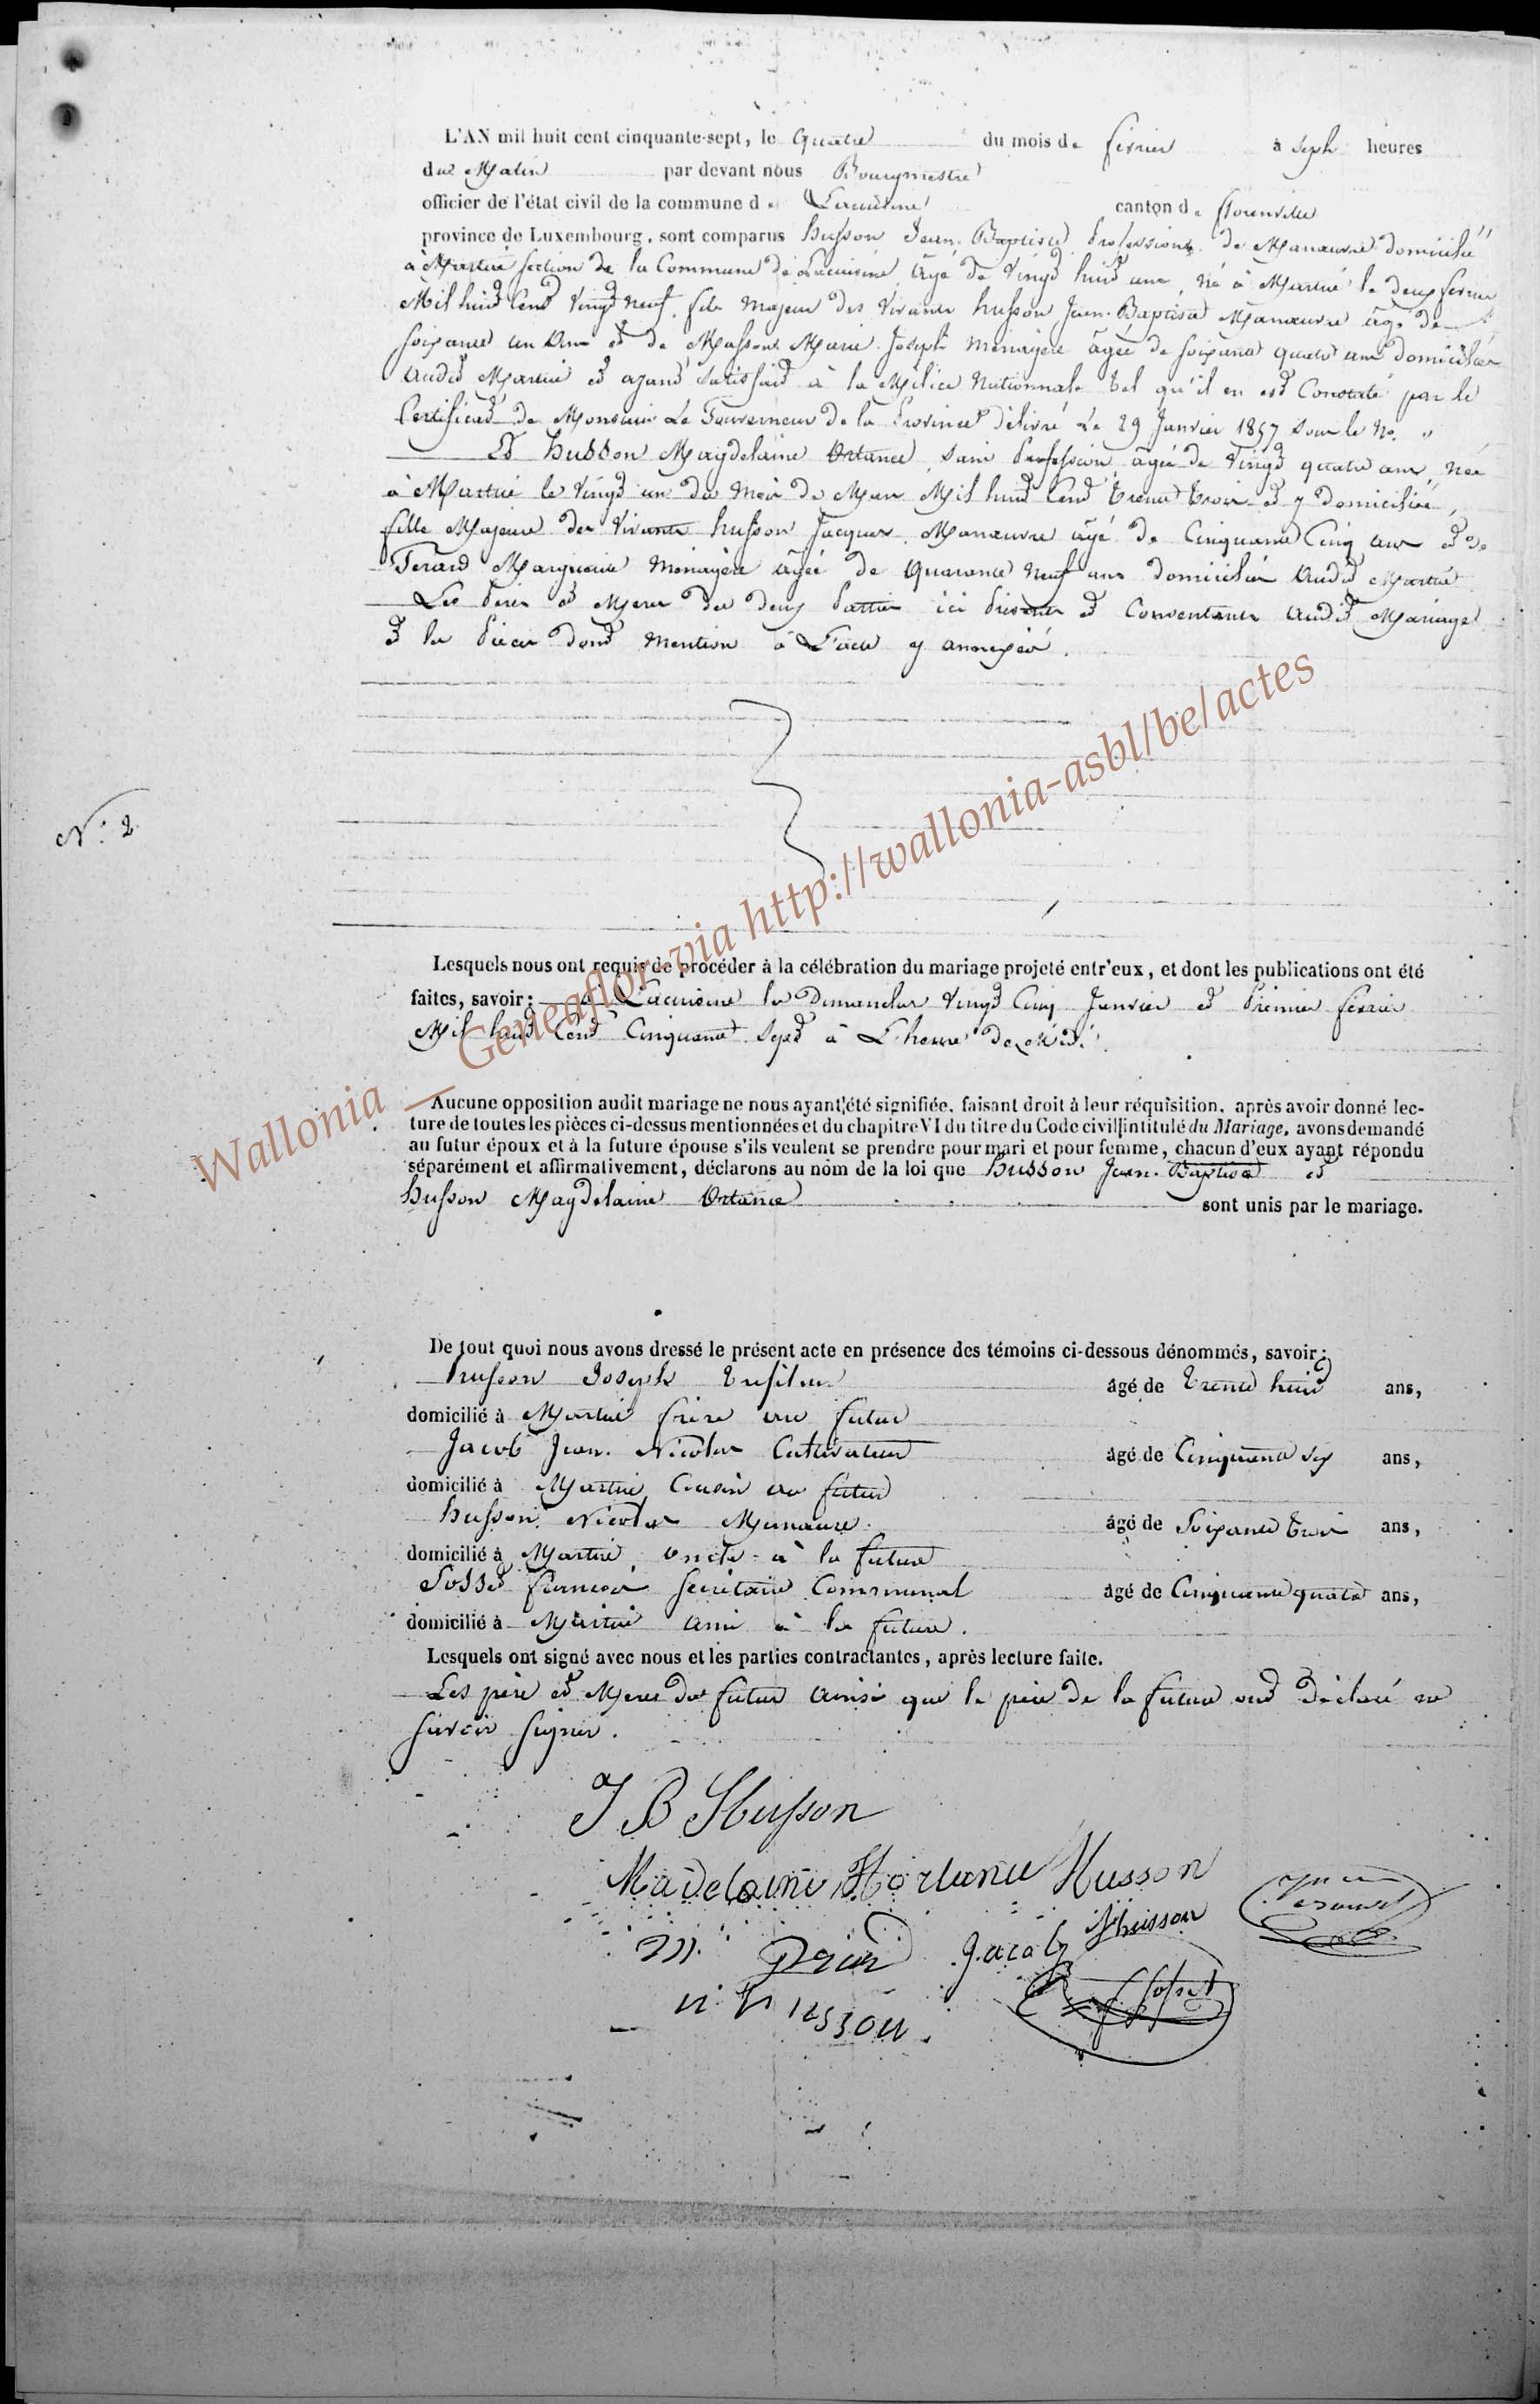 L'AN mil huit cent cinquante-sept, le Quatre du mois de fevrier à Sept heures
du Matin par devant nous Bourgmestre
officier de l'état civil de la commune de Lacuisine canton de florenville
province de Luxembourg, sont comparus husson Jean-Baptiste Profession de Manœuvre domicilié
à Martué section de la Commune de Lacuisine, âgé de Vingt huit ans, né à Martué le deux fevrier
Mil huit Cent Vingt neuf, fils Majeur des Vivants husson Jean-Baptiste Manœuvre âgé de
soixante un Ans et de Masson Marie-Joseph Menagère agée de soixante quatre ans domiciliés
audit Martué et ayant satisfait à la Milice Nationnale tel qu'il en est Constaté par le
Certificat de Monsieur Le Gouverneur de la Province délivré Le 29 Janvier 1857 sous le No. "
Et husson Magdelaine Ortance, sans Profession, agée de Vingt quatre ans, née
à Martué le Vingt un du Mois de Mars Mil huit Cent Trente Trois et y domiciliée,
fille Majeure des Vivants husson Jacques, Manœuvre âgé de Cinquante Cinq ans et de
Marguerite Menagère agée de Quarante Neuf ans domiciliés audit Martué
Les Pères et Meres des deux Parties ici Présents et Consentants audit Mariage
et les Pièces dont Mention à L'acte y annexées.
N° 2
Lesquels nous ont requis de procéder à la célébration du mariage projeté entr'eux, et dont les publications ont été
faites, savoir : à Lacuisine les Dimanches Vingt Cinq Janvier et Premier fevrier
Mil huit Cent Cinquante Sept à L'heure de Midi.
Aucune opposition audit mariage ne nous ayant été signifiée, faisant droit à leur réquisition, après avoir donné lec-
ture de toutes les pièces ci-dessus mentionnées et du chapitre VI du titre du Code civil intitulé du Mariage, avons demandé
au futur époux et à la future épouse s'ils veulent se prendre pour mari et pour femme, chacun d'eux ayant répondu
séparément et affirmativement, déclarons au nom de la loi que husson Jean-Baptiste et
husson Magdelaine Ortance sont unis par le mariage.
De tout quoi nous avons dressé le présent acte en présence des témoins ci-dessous dénommés, savoir :
husson Joseph âgé de Trente huit ans,
domicilié à Martué frère au futur
Jacob Jean-Nicolas Cultivateur âgé de Cinquante six ans,
domicilié à Martué Cousin au futur
husson Nicolas Manœuvre âgé de Soixante Trois ans,
domicilié à Martué oncle à la future
Sosset françois Secrétaire Communal âgé de Cinquante quatre ans,
domicilié à Martué ami à la future.
Lesquels ont signé avec nous et les parties contractantes, après lecture faite.
Les père et Mere du futur ainsi que le père de la future ont déclaré ne
savoir signer.
J B Husson
Madelaine Hortance Husson
M. Jacob J husson
n husson. Sosset
Wallonia _ Geneaflor via http://wallonia-asbl/be/actes